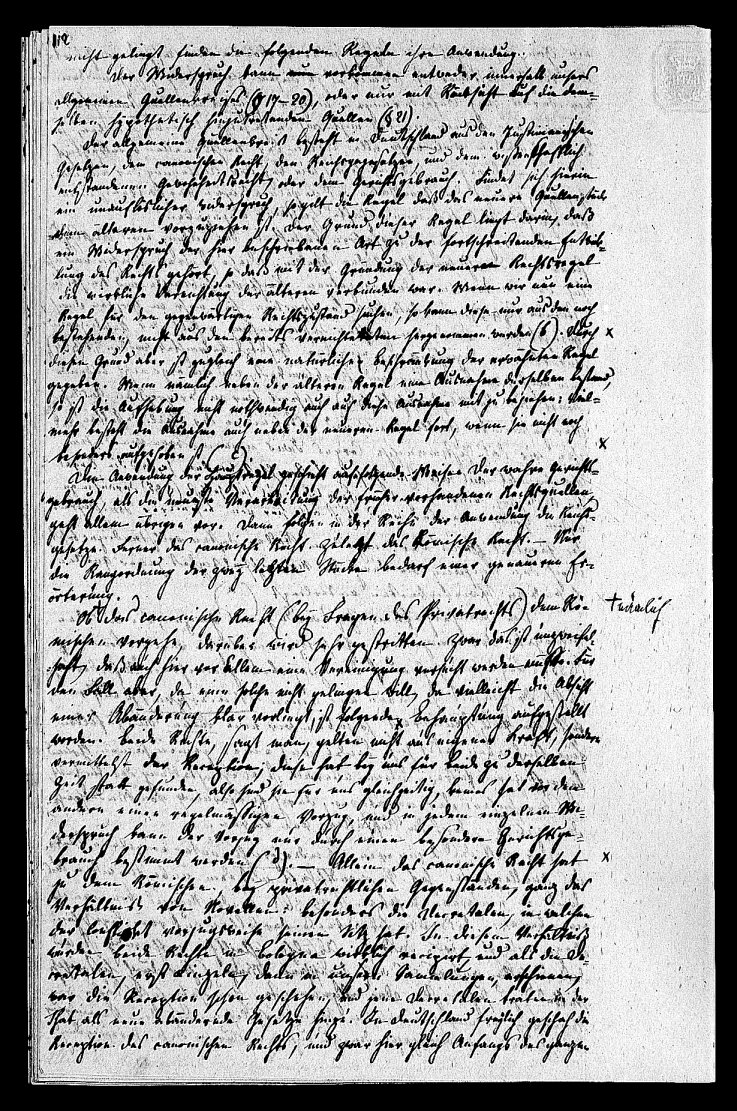 112
nicht gelingt, finden die folgenden Regeln ihre Anwendung.
Der Widerspruch kann nun vorkommen entweder innerhalb unsers
allgemeinen Quellenkreises (§ 17–20), oder nur mit Rücksicht auf die dem-
selben hypothetisch hinzutretenden Quellen (§ 21).
Der allgemeine Quellenkreis besteht in Deutschland aus den Justinianischen
Gesetzen, dem canonischen Recht, den Reichsgesetzen, und dem wissenschaftlich
entstandenen Gewohnheitsrecht, oder dem Gerichtsgebrauch. Findet sich hierin
ein unauflöslicher Widerspruch, so gilt die Regel daß das neuere Quellenstück
dem älteren vorzuziehen ist. Der Grund dieser Regel liegt darin, daß
ein Widerspruch der hier beschriebenen Art zu der fortschreitenden Entwick-
lung des Rechts gehört, so daß mit der Gründung der neueren Rechtsregel
die wirkliche Vernichtung der älteren verbunden war. Wenn wir nun eine
Regel für den gegenwärtigen Rechtszustand suchen, so kann diese nur aus den noch
bestehenden, nicht aus den bereits vernichteten hergenommen werden (b). Durch x
diesen Grund aber ist zugleich eine natürliche Beschränkung der erwähnten Regel
gegeben. Wenn nämlich neben der älteren Regel eine Ausnahme derselben bestand,
so ist die Aufhebung nicht nothwendig auch auf diese Ausnahme mit zu beziehen: viel-
mehr besteht die Ausnahme auch neben der neueren Regel fort, wenn sie nicht noch
besonders aufgehoben ist (c). x
Die Anwendung der Hauptregel geschieht auf folgende Weise. Der wahre Gerichts-
gebrauch, als die neueste Verarbeitung der früher vorhandenen Rechtsquellen,
geht allem übrigen vor. Dann folgen in der Reihe der Anwendung die Reichs-
gesetze. Ferner das canonische Recht. Zuletzt das Römische Recht. — Nur
die Rangordnung der zwey letzten Stücke bedarf einer genaueren Er-
örterung.
Ob das canonische Recht (bey Fragen des Privatrechts) dem Rö- † nämlich
mischen vorgehe, darüber wird sehr gestritten. Zwar das ist unzweifel-
haft, daß auch hier vor Allem eine Vereinigung versucht werden muß. Für
den Fall aber, da eine solche nicht gelingen will, da vielleicht die Absicht
einer Abänderung klar vorliegt, ist folgende Behauptung aufgestellt
worden. Beide Rechte, sagt man, gelten nicht aus eigener Kraft, sondern
vermittelst der Reception; diese hat bey uns für beide zu derselben
Zeit statt gefunden, also sind sie für uns gleichzeitig, keines hat vor dem
andern einen regelmäßigen Vorzug, und in jedem einzelnen Wi-
derspruch kann der Vorzug nur durch einen besondern Gerichtsge-
brauch bestimmt werden (d). — Allein das canonische Recht hat x
zu dem Römischen, bey privatrechtlichen Gegenständen, ganz das
Verhältniß von Novellen: besonders die Decretalen, in welchen
der vorzugsweise seinen Sitz hat. In diesem Verhältniß
wurden beide Rechte in Bologna wirklich recipirt, und als die De-
cretalen, erst einzeln, dann in unsren Sammlungen, erschienen,
war die Reception schon geschehen, und jene Decretalen traten in der
That als neue abändernde Gesetze hinzu. In Deutschland freylich geschah die
Reception des canonischen Rechts, und zwar hier gleich Anfangs des ganzen